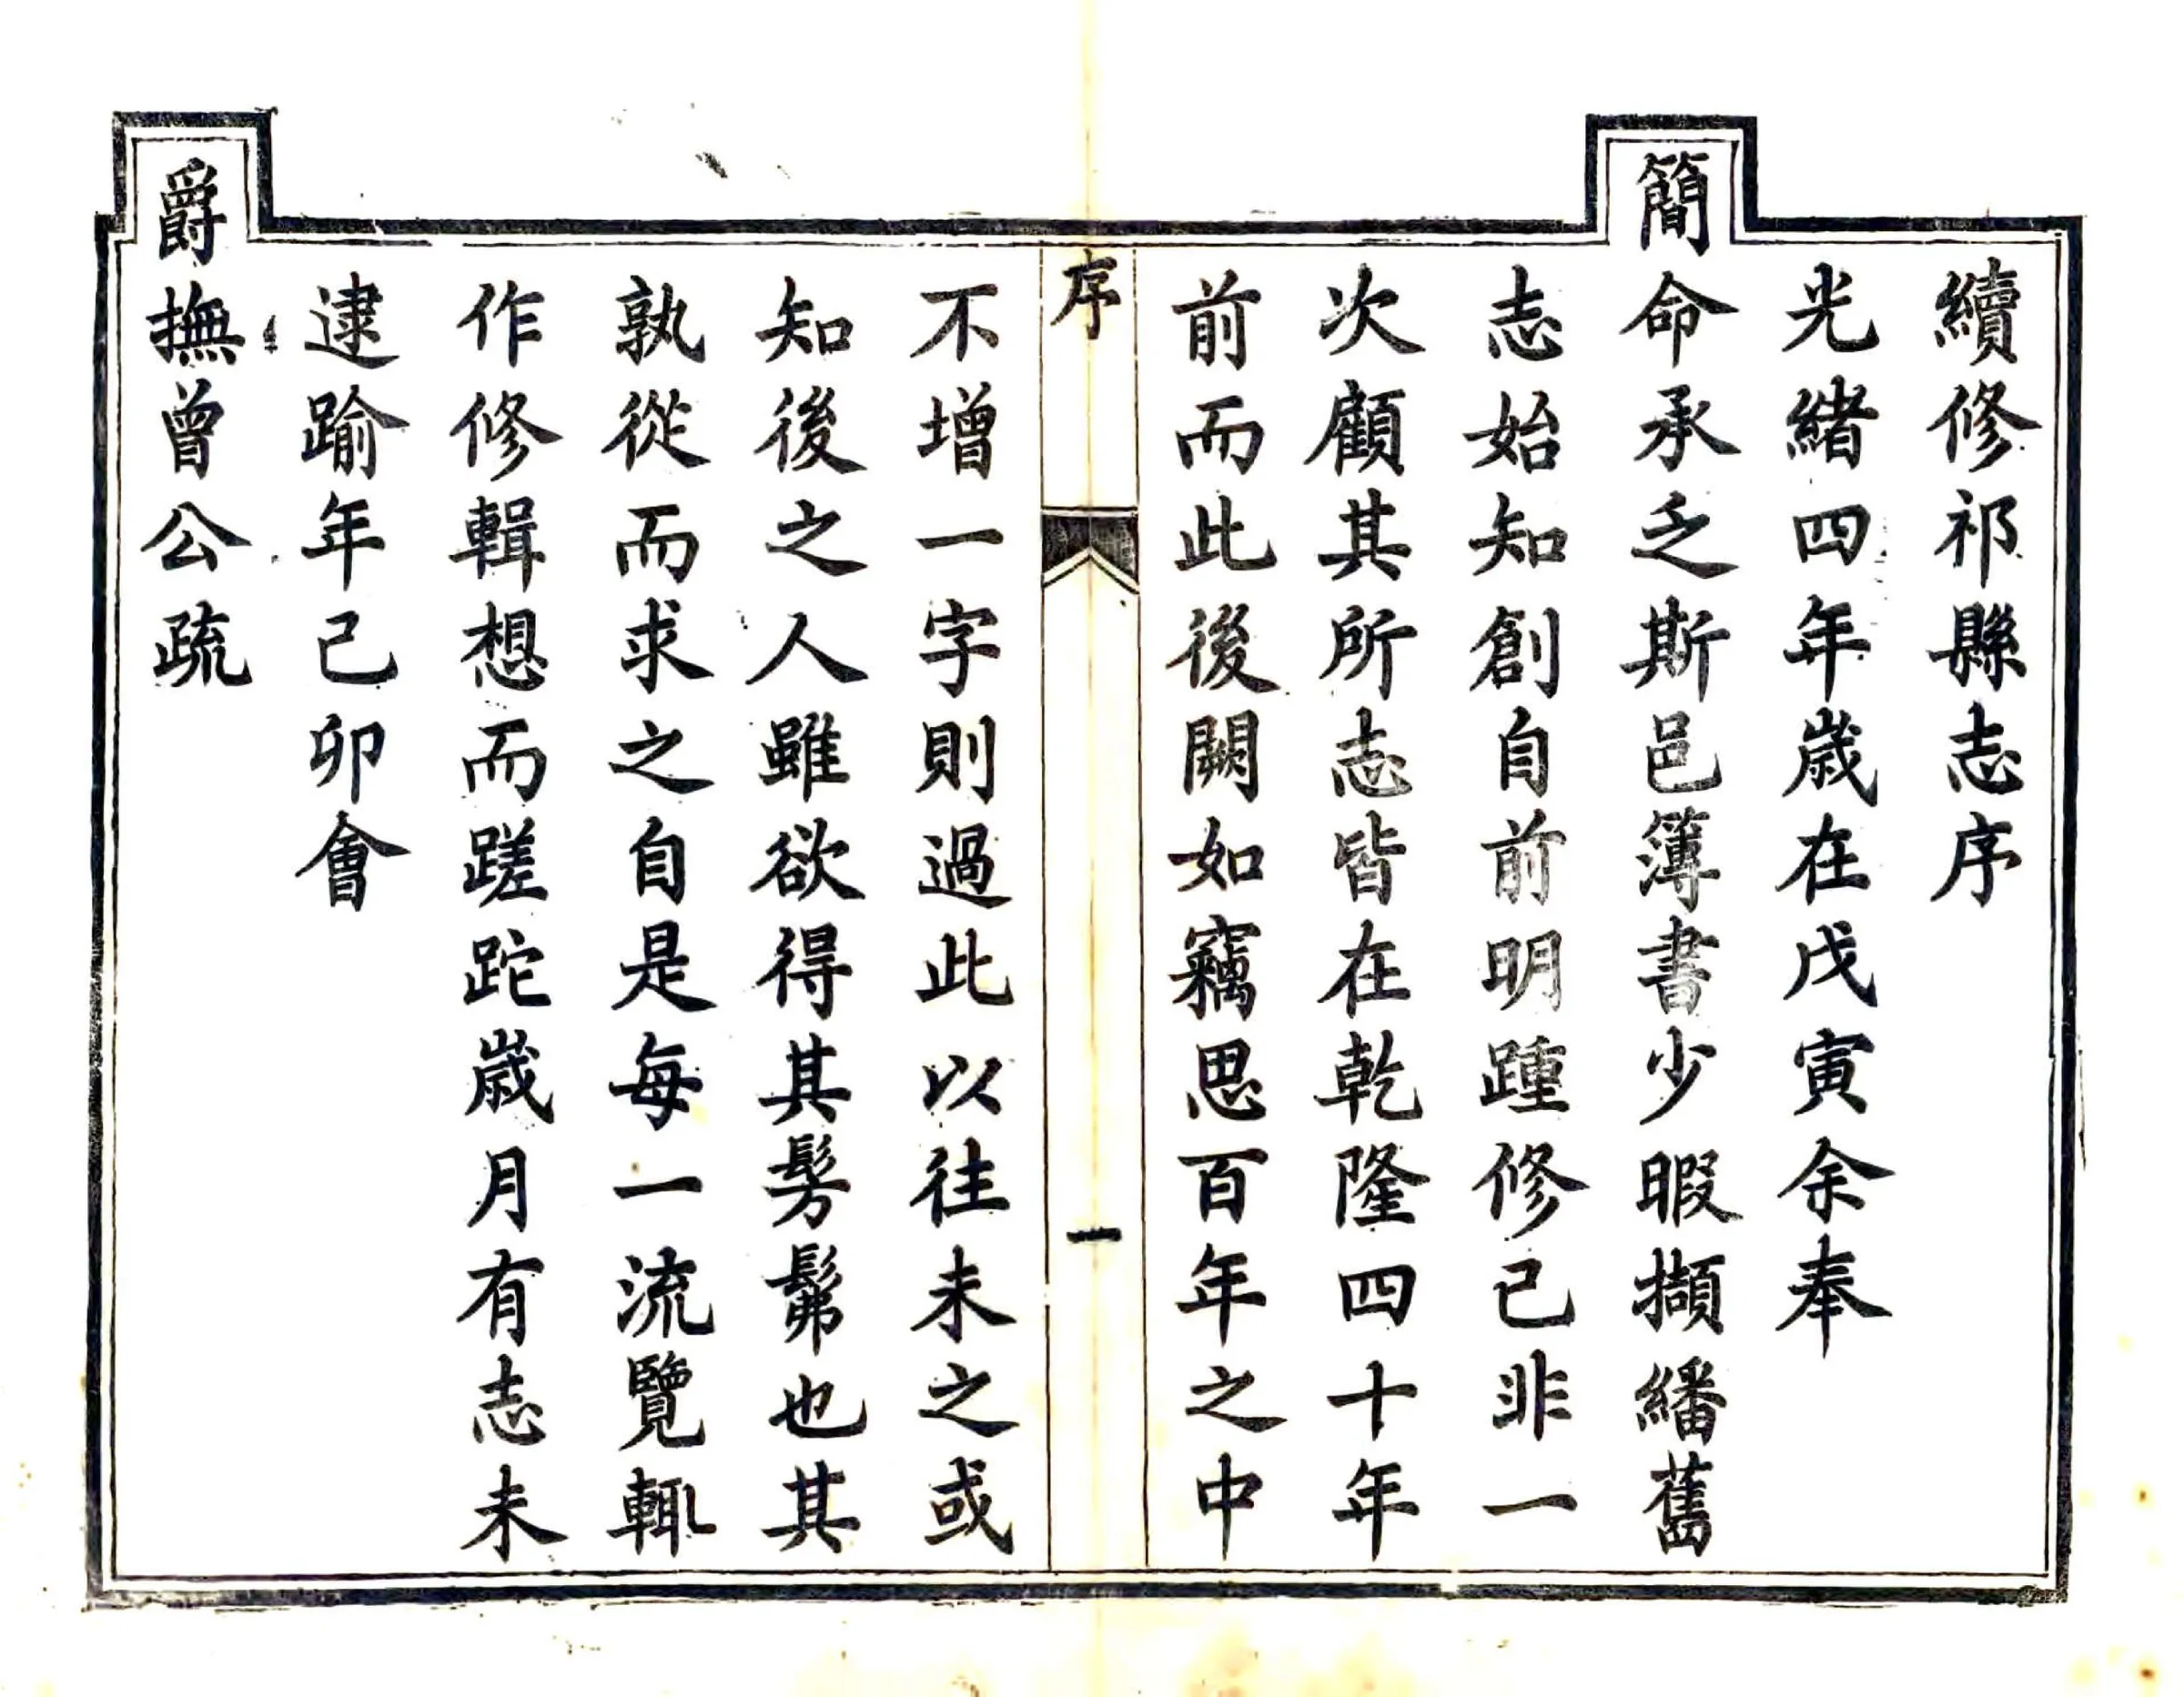 續修祁縣志序
光緒四年歲在戊寅余奉
簡命承乏斯邑簿書少暇擷繙舊
志始知創自前明踵修已非一
次顧其所志皆在乾隆四十年
前而此後闕如竊思百年之中
序
一
不增一字則過此以往未之或
知後之人雖欲得其髣髴也其
孰從而求之自是每一流覽輒
作修輯想而蹉跎歲月有志未
逮踰年己卯會
爵撫曾公疏